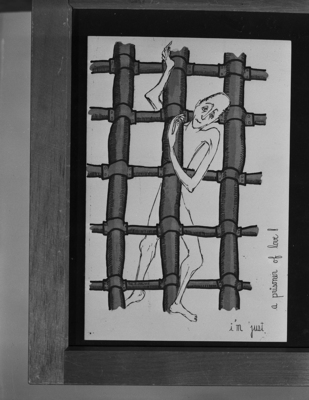 i'm just
a prisoner of love!